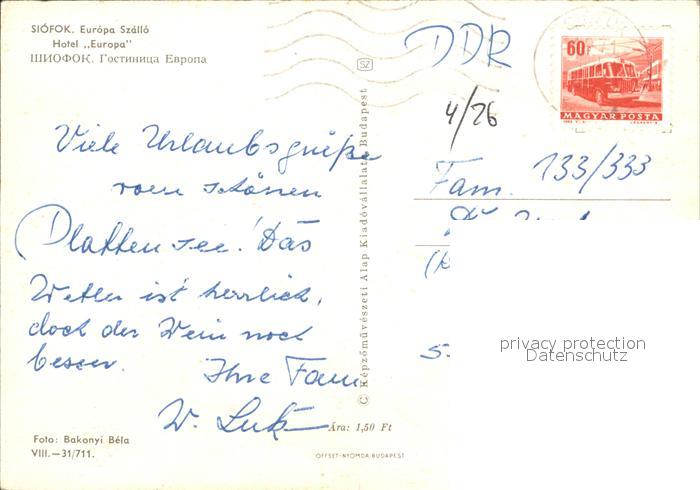 SIÓFOK. Európa Szálló
Hotel „Europa"
ШИОФОК. Гостиница Европа
Viele Urlaubsgrüße
vom schönen
Plattensee! Das
Wetter ist herrlich,
doch der Wein noch
besser.
Ihre Fam
W. Luk
Foto: Bakonyi Béla
VIII.—31/711.
SZ
© Képzőművészeti Alap Kiadóvállalata, Budapest
Ára: 1,50 Ft
OFFSET-NYOMDA, BUDAPEST
DDR
60f
MAGYAR POSTA
4/26
133/333
Fam.
privacy protection
Datenschutz